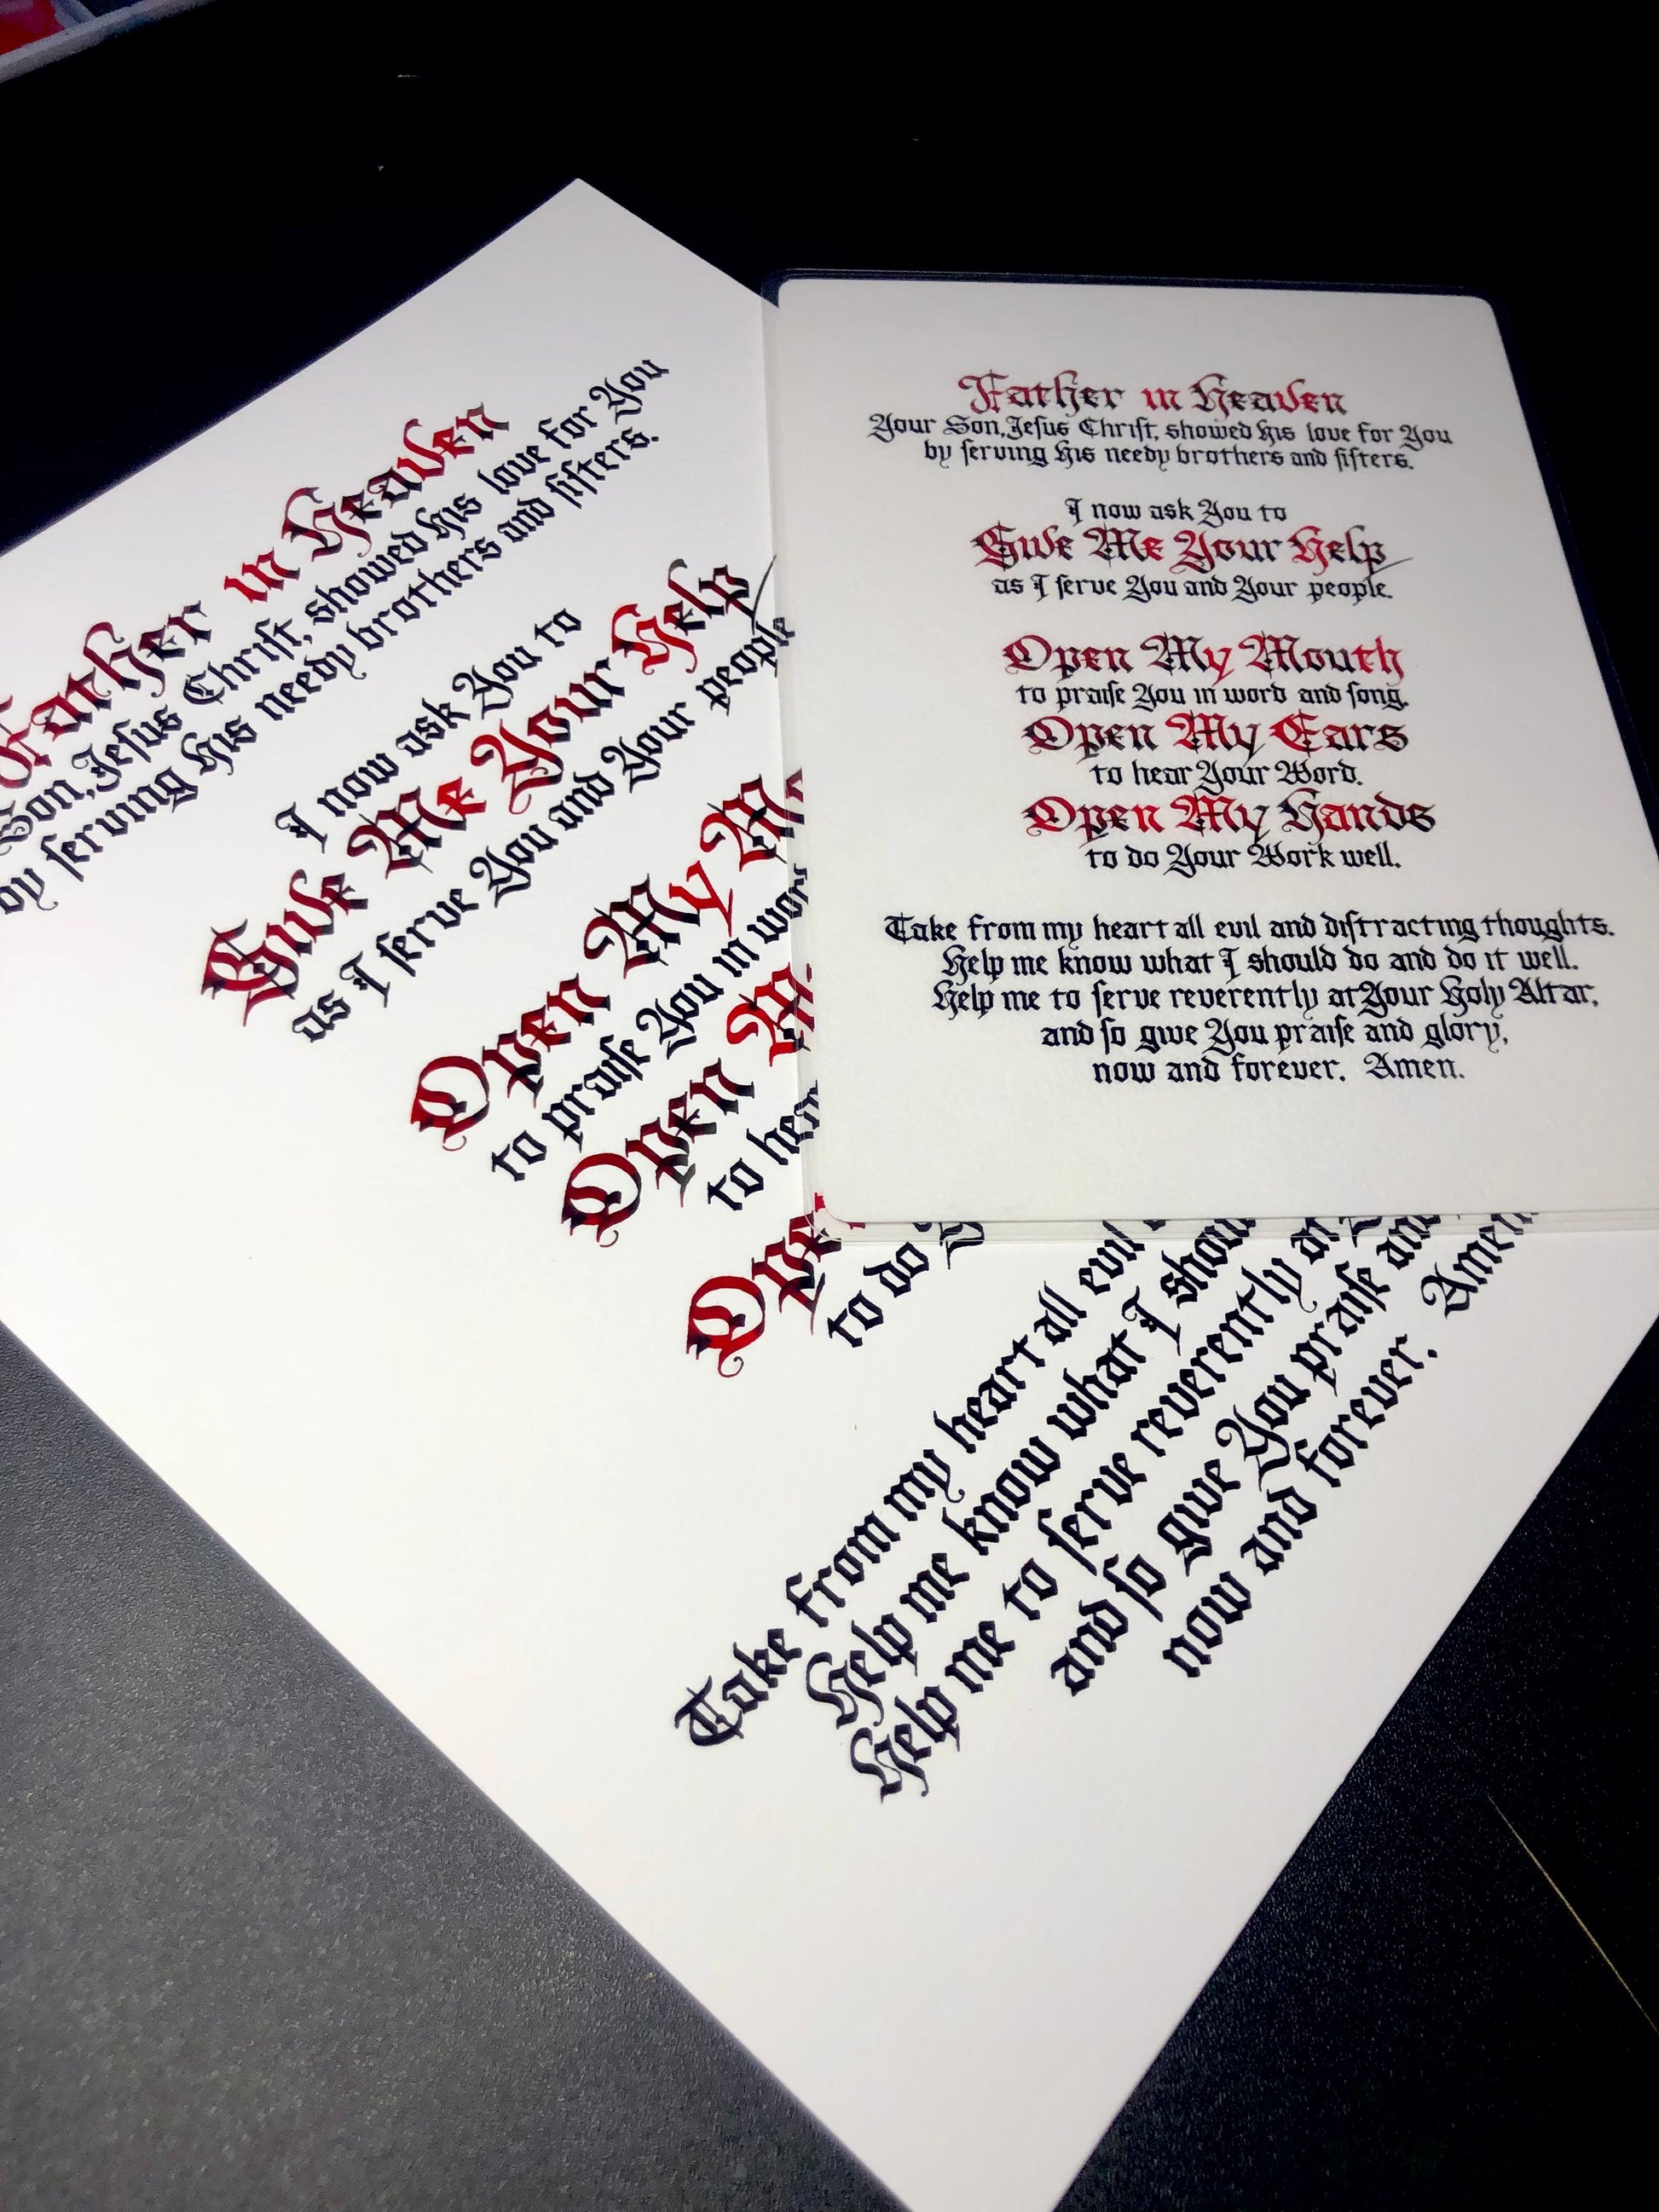 Father in Heaven
Son, Jeſus Chriſt, showed His love for You
by ſerving His needy brothers and ſiſters.
I now ask You to
Give Me Your Help
as I ſerve You and Your people
Open My
to praiſe You in
Open
to
to do
Take from my heart all evil
Help me know what I
Help me to ſerve reverently
and ſo give You praiſe and
now and forever. Amen
Father in Heaven
Your Son, Jeſus Chriſt, showed His love for You
by ſerving His needy brothers and ſiſters.
I now ask You to
Give Me Your Help
as I ſerve You and Your people.
Open My Mouth
to praiſe You in word and ſong.
Open My Ears
to hear Your Word.
Open My Hands
to do Your Work well.
Take from my heart all evil and diſtracting thoughts.
Help me know what I should do and do it well.
Help me to ſerve reverently at Your Holy Altar,
and ſo give You praiſe and glory,
now and forever. Amen.